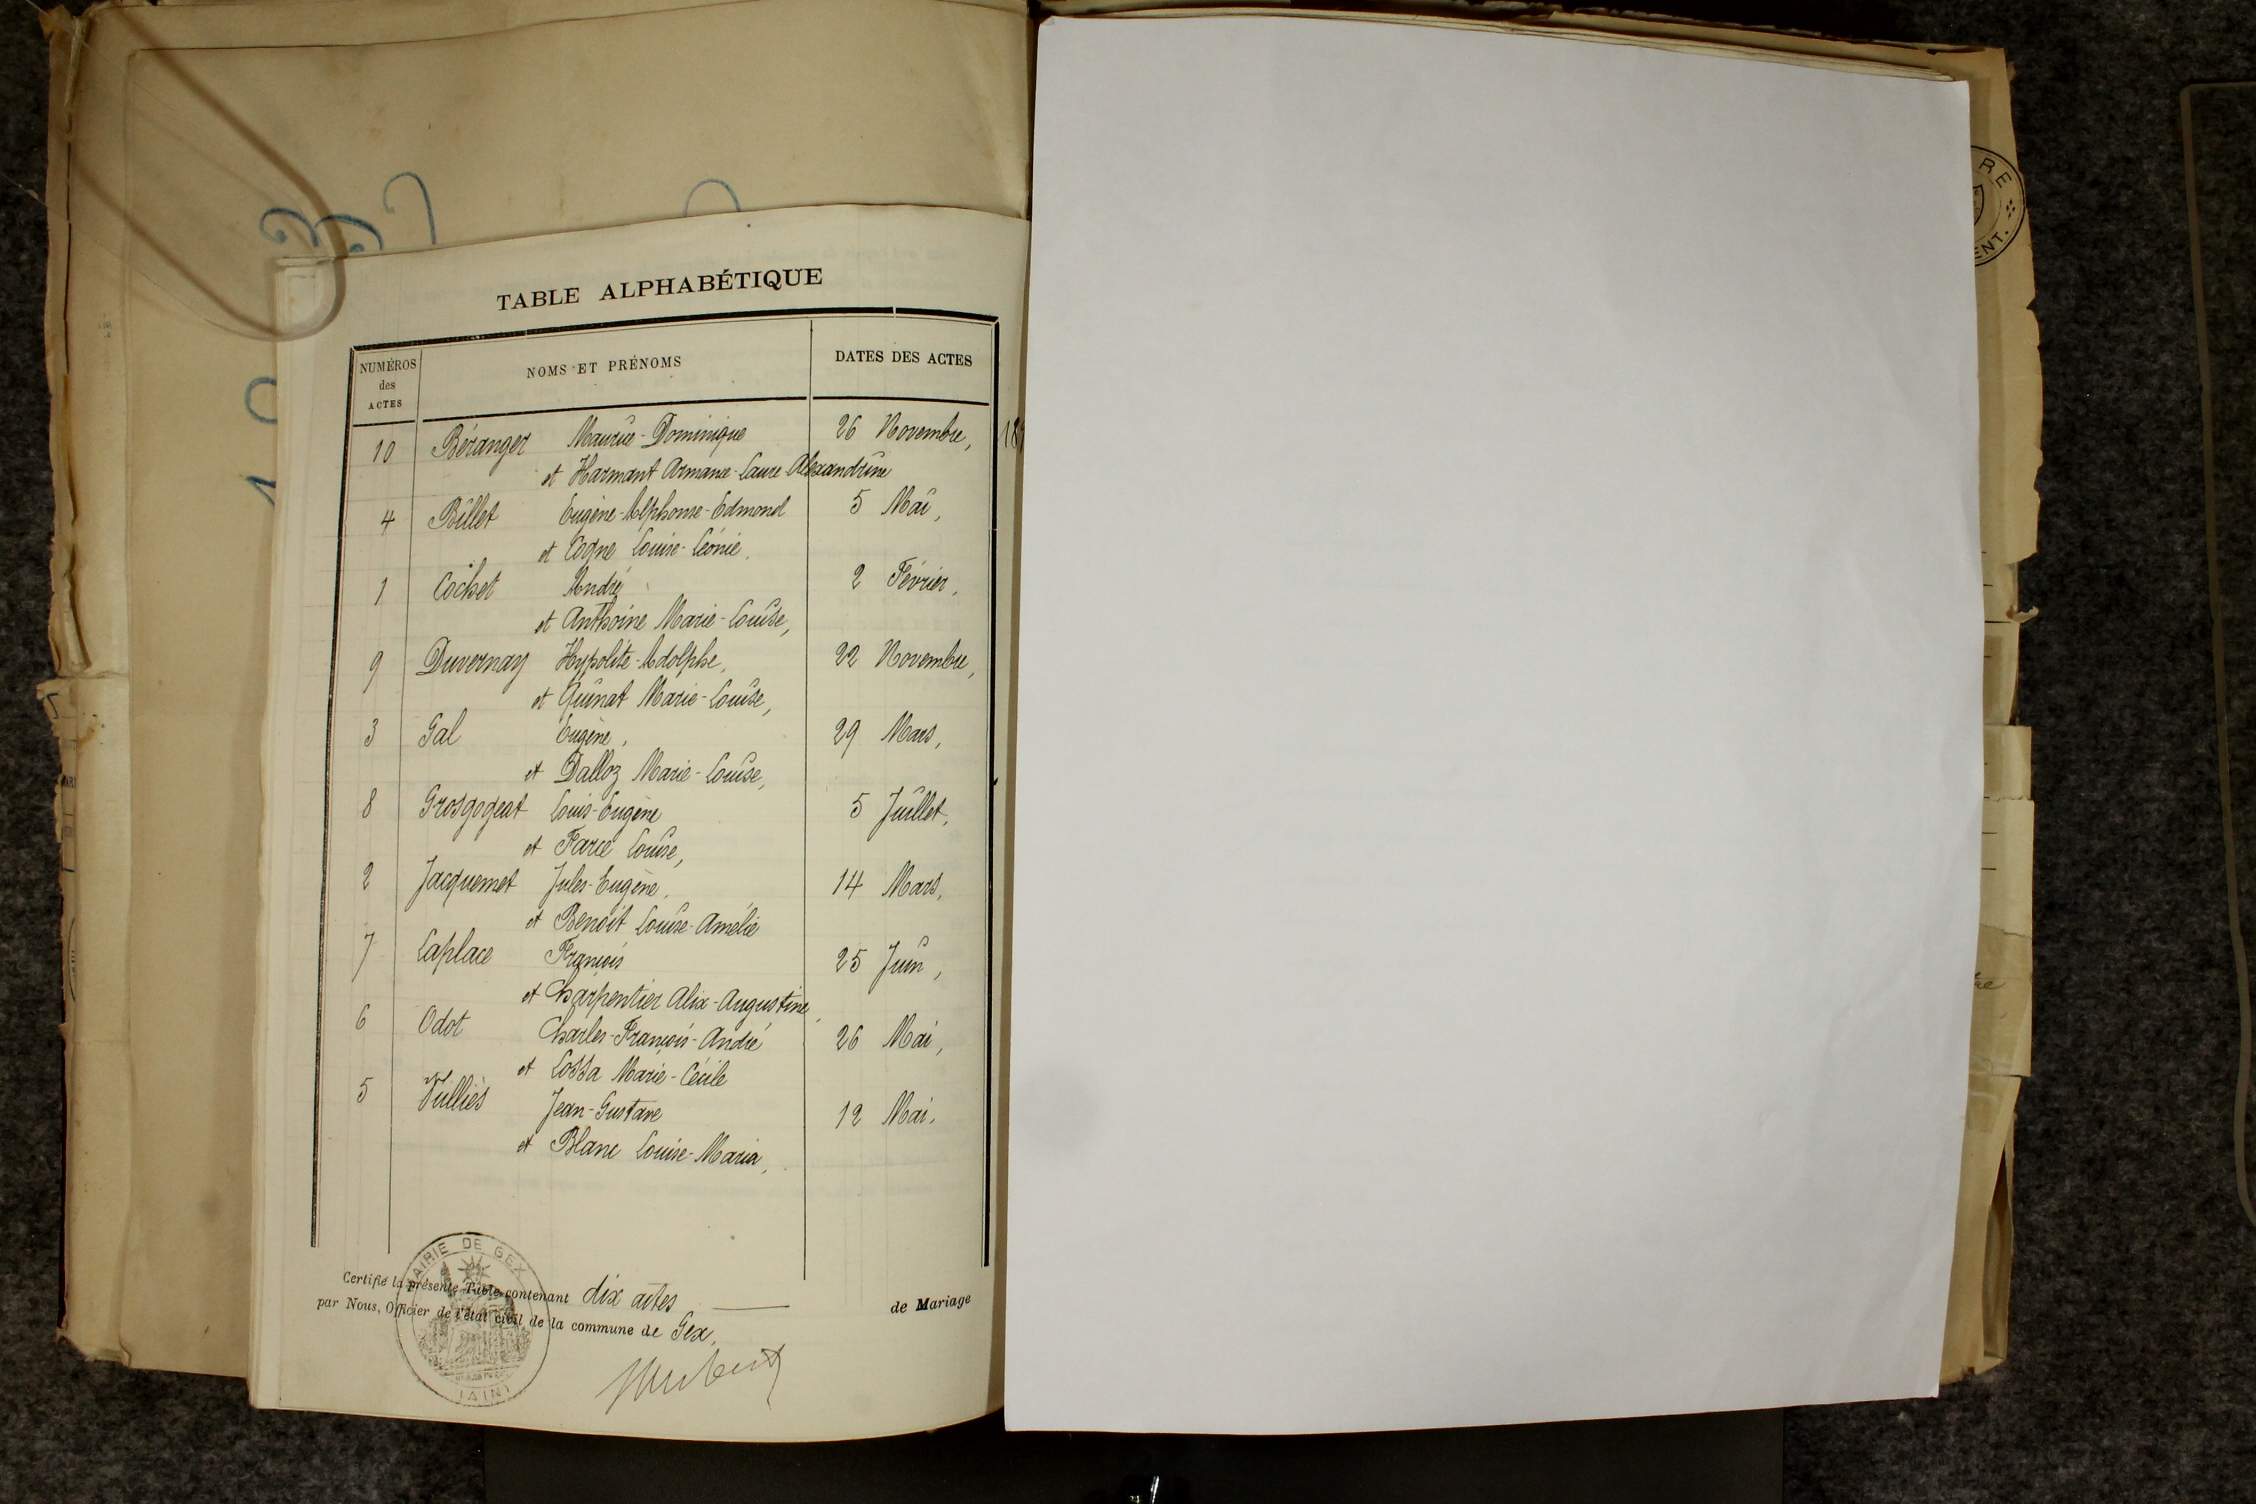 TABLE ALPHABÉTIQUE
NUMÉROS des ACTES
NOMS ET PRÉNOMS
DATES DES ACTES
10 Béranger Maurice-Dominique 26 Novembre, 18
et Harmant Armance-Laure Alexandrine
4 Billet Eugène-Alphonse-Edmond 5 Mai,
et Cogne Louise-Léonie.
1 Cochet André 2 Février,
et Anthoine Marie-Louise,
9 Duvernay Hypolite-Adolphe, 22 Novembre,
et Quinat Marie-Louise,
3 Gal Eugène, 29 Mars,
et Dalloz Marie-Louise,
8 Grosgogeat Louis-Eugène 5 Juillet,
et Farce Louise,
2 Jacquemet Jules-Eugène, 14 Mars,
et Benoit Louise-Amélie
7 Laplace François 25 Juin,
et Charpentier Alix-Augustine,
6 Odot Charles-François-André 26 Mai,
et Lossa Marie-Cécile
5 Vulliès Jean-Gustave 12 Mai,
et Blanc Louise-Maria,
Certifié la présente Table contenant dix actes de Mariage
par Nous, Officier de l'état civil de la commune de Gex,
MAIRIE DE GEX
(AIN)
RE
ENT.